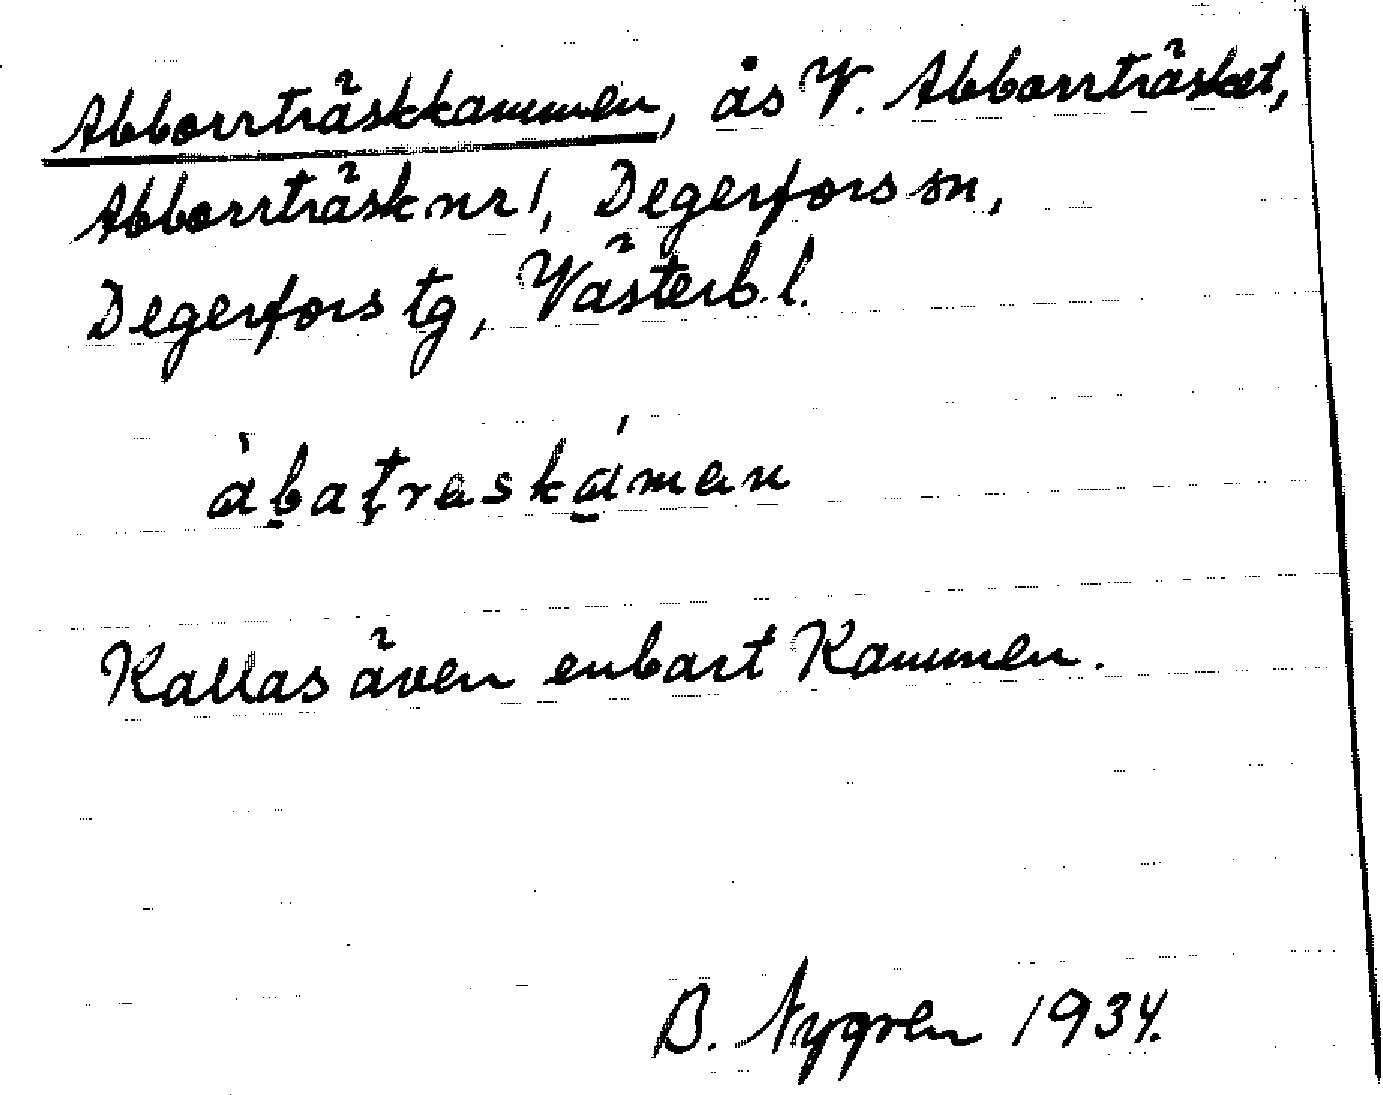 Abborrträskkammen, ås V. Abborrträsket,
Abborrträsk nr 1, Degerfors sn,
Degerfors tg, Västerb. l.
àḇaţreská̱men
Kallas även enbart Kammen.
B. Nygren 1934.